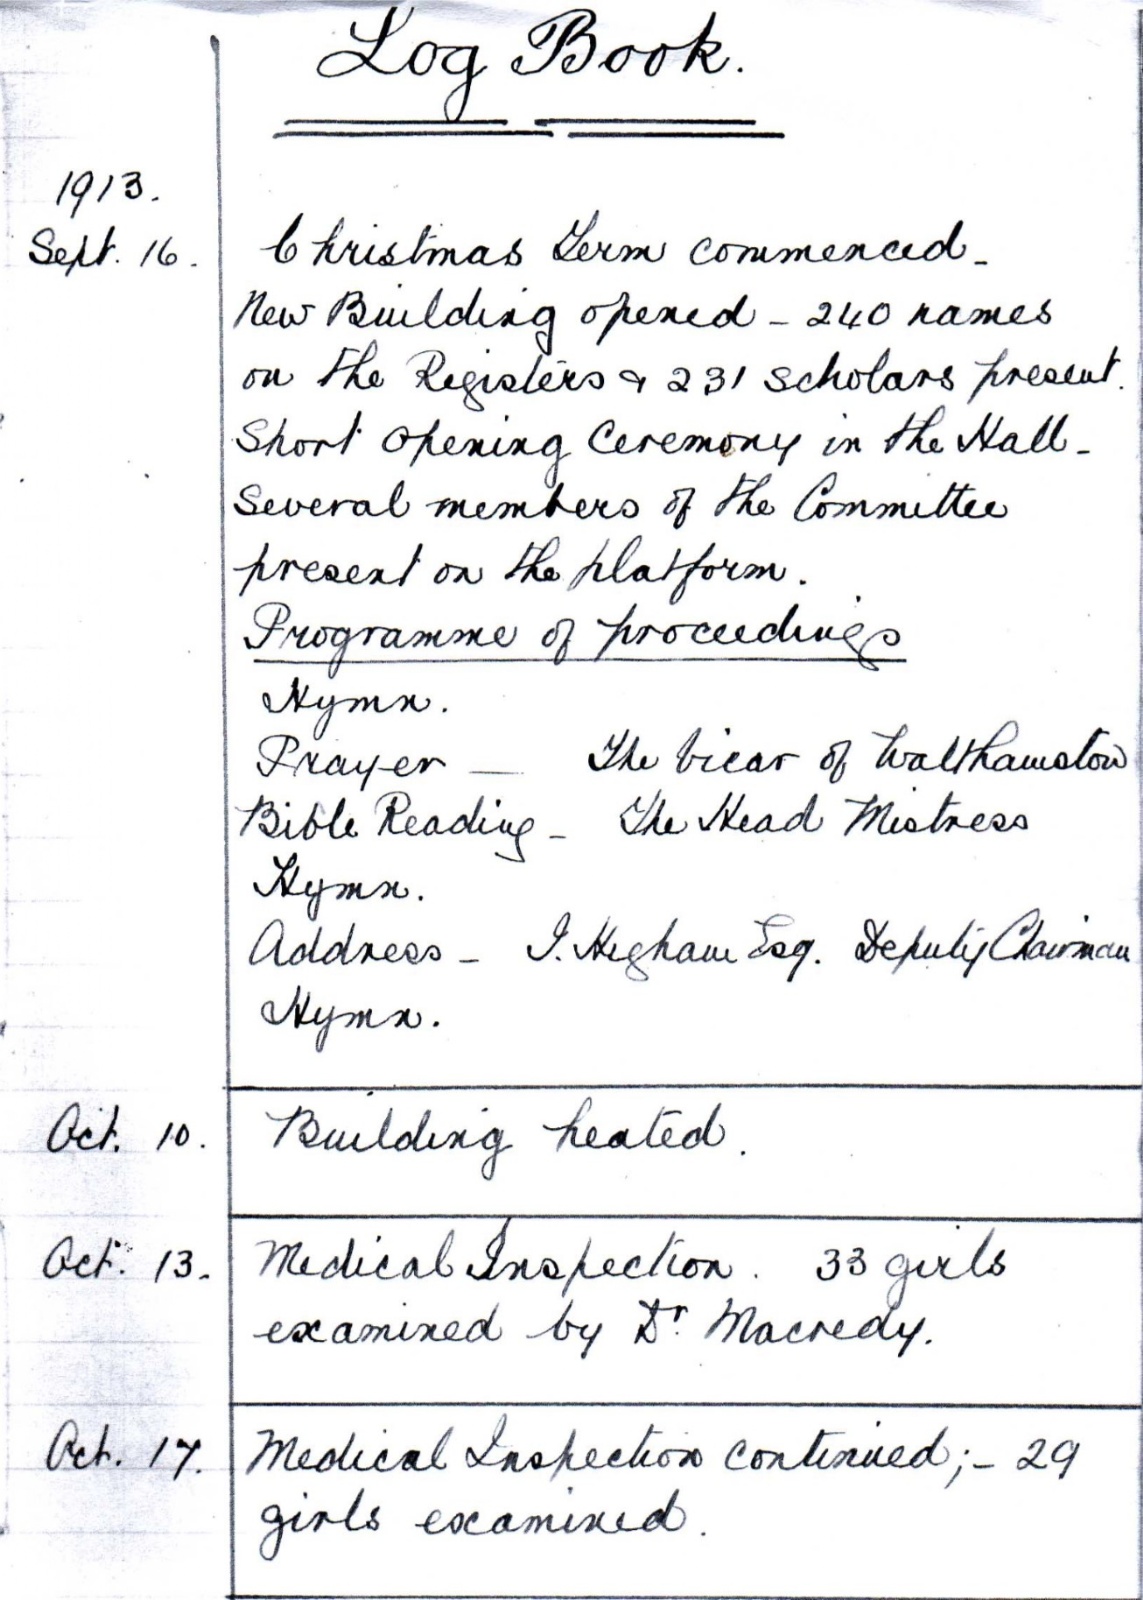 Log Book.
1913.
Sept. 16. Christmas Term commenced -
New Building opened - 240 names
on the Registers & 231 scholars present.
Short opening ceremony in the Hall -
Several members of the Committee
present on the platform.
Programme of proceedings
Hymn.
Prayer — The Vicar of Walthamstow
Bible Reading - The Head Mistress
Hymn.
Address - I. Higham Esq. Deputy Chairman
Hymn.
Oct. 10. Building heated.
Oct. 13. Medical Inspection. 33 girls
examined by Dr. Macredy.
Oct. 17. Medical Inspection continued;- 29
girls examined.